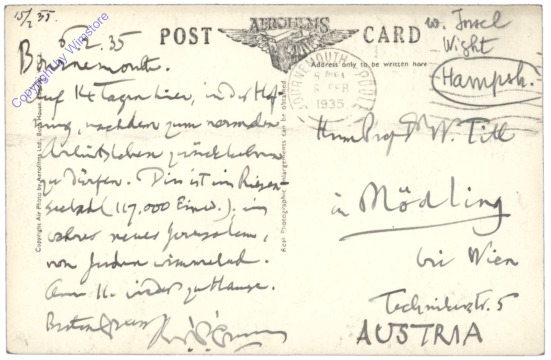 15/2 35
6.2.35
Bournemouth.
Auf 14 Tage hier, in der Hoff-
nung, nachdem zum normalen
Arbeitsleben zurückkehren
zu dürfen. Dies ist ein Riesen-
seebad (117.000 Einw.), ein
wahres neues Jerusalem,
von Juden wimmelnd.
Am 11. wieder zu Hause.
Besten Gruss
POST CARD
AEROFILMS
Address only to be written here
BOURNEMOUTH - POOLE
FEB
1935
w. Insel
Wight
Hampsh.
Herrn Prof. W. Titl
in Mödling
bei Wien
Technikerstr. 5
AUSTRIA
Copyright Air Photo by Aerofilms Ltd., Bush House
Real Photographic Enlargements can be obtained
Copyright by Wimstore